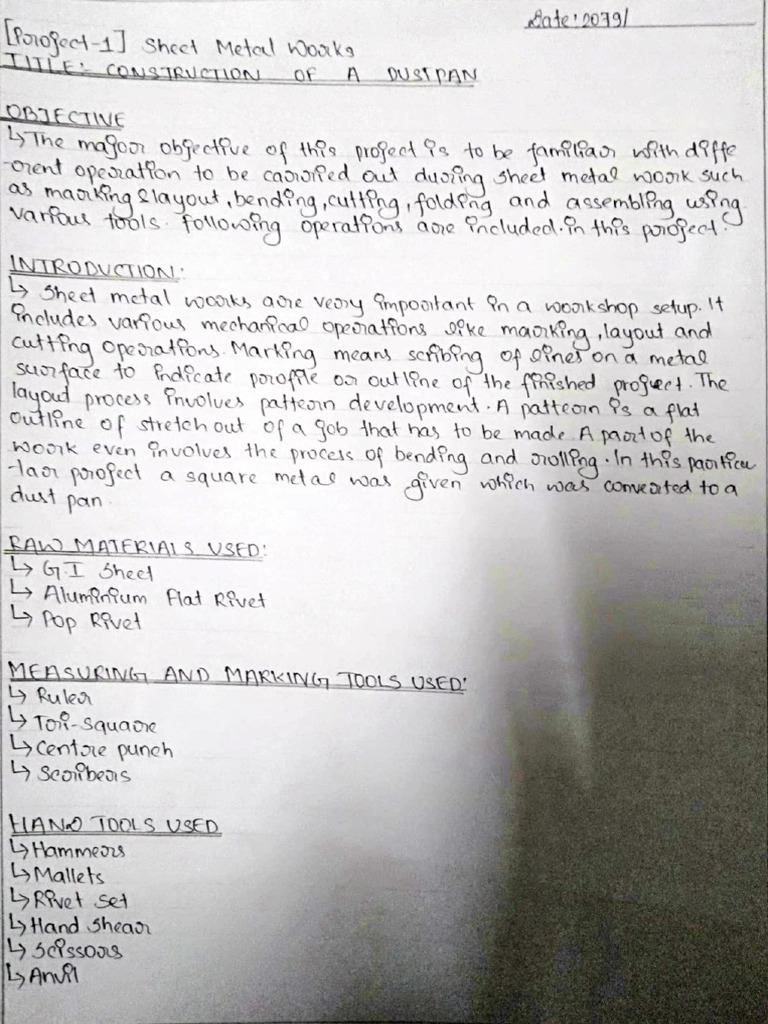 Date: 2079/
[Project-1] Sheet Metal Works
TITLE:- CONSTRUCTION OF A DUSTPAN
OBJECTIVE
↳ The major objective of this project is to be familiar with diffe
-rent operation to be carried out during sheet metal work such
as marking & layout, bending, cutting, folding and assembling using
various tools. Following operations are included in this project.
INTRODUCTION:
↳ Sheet metal works are very important in a workshop setup. It
includes various mechanical operations like marking, layout and
cutting operations. Marking means scibing of lines on a metal
surface to indicate profile or outline of the finished project. The
layout process involves pattern development. A pattern is a flat
outline of stretch out of a job that has to be made. A part of the
work even involves the process of bending and rolling. In this particu
-lar project a square metal was given which was converted to a
dust pan.
RAW MATERIALS USED:
↳ G.I Sheet
↳ Aluminium Flat Rivet
↳ Pop Rivet
MEASURING AND MARKING TOOLS USED:
↳ Ruler
↳ Tri-square
↳ Centre punch
↳ Scribers
HAND TOOLS USED
↳ Hammers
↳ Mallets
↳ Rivet set
↳ Hand Shear
↳ Scissors
↳ Anvil